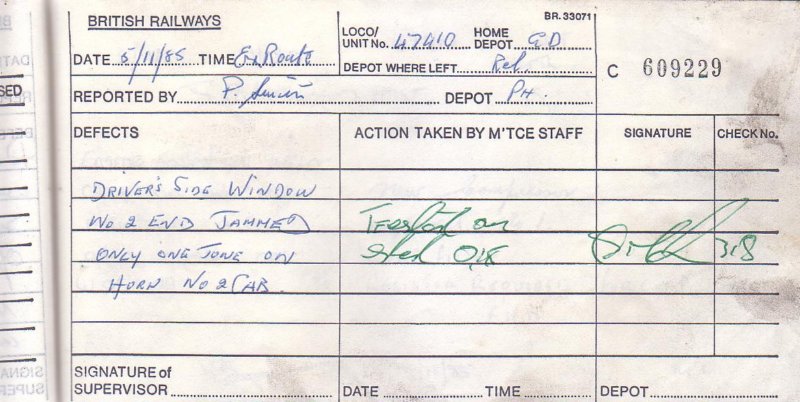 BR. 33071
BRITISH RAILWAYS
LOCO/ UNIT No. 47410 HOME DEPOT GD
DATE 5/11/85 TIME En Route
DEPOT WHERE LEFT Rel
C 609229
REPORTED BY P. DEPOT PH.
SED
DEFECTS ACTION TAKEN BY M'TCE STAFF SIGNATURE CHECK No.
DRIVER'S SIDE WINDOW
No 2 END JAMMED Tested on
ONLY ONE TONE ON shed O/K 318
HORN No 2 CAB.
SIGNATURE of
SUPERVISOR DATE TIME DEPOT